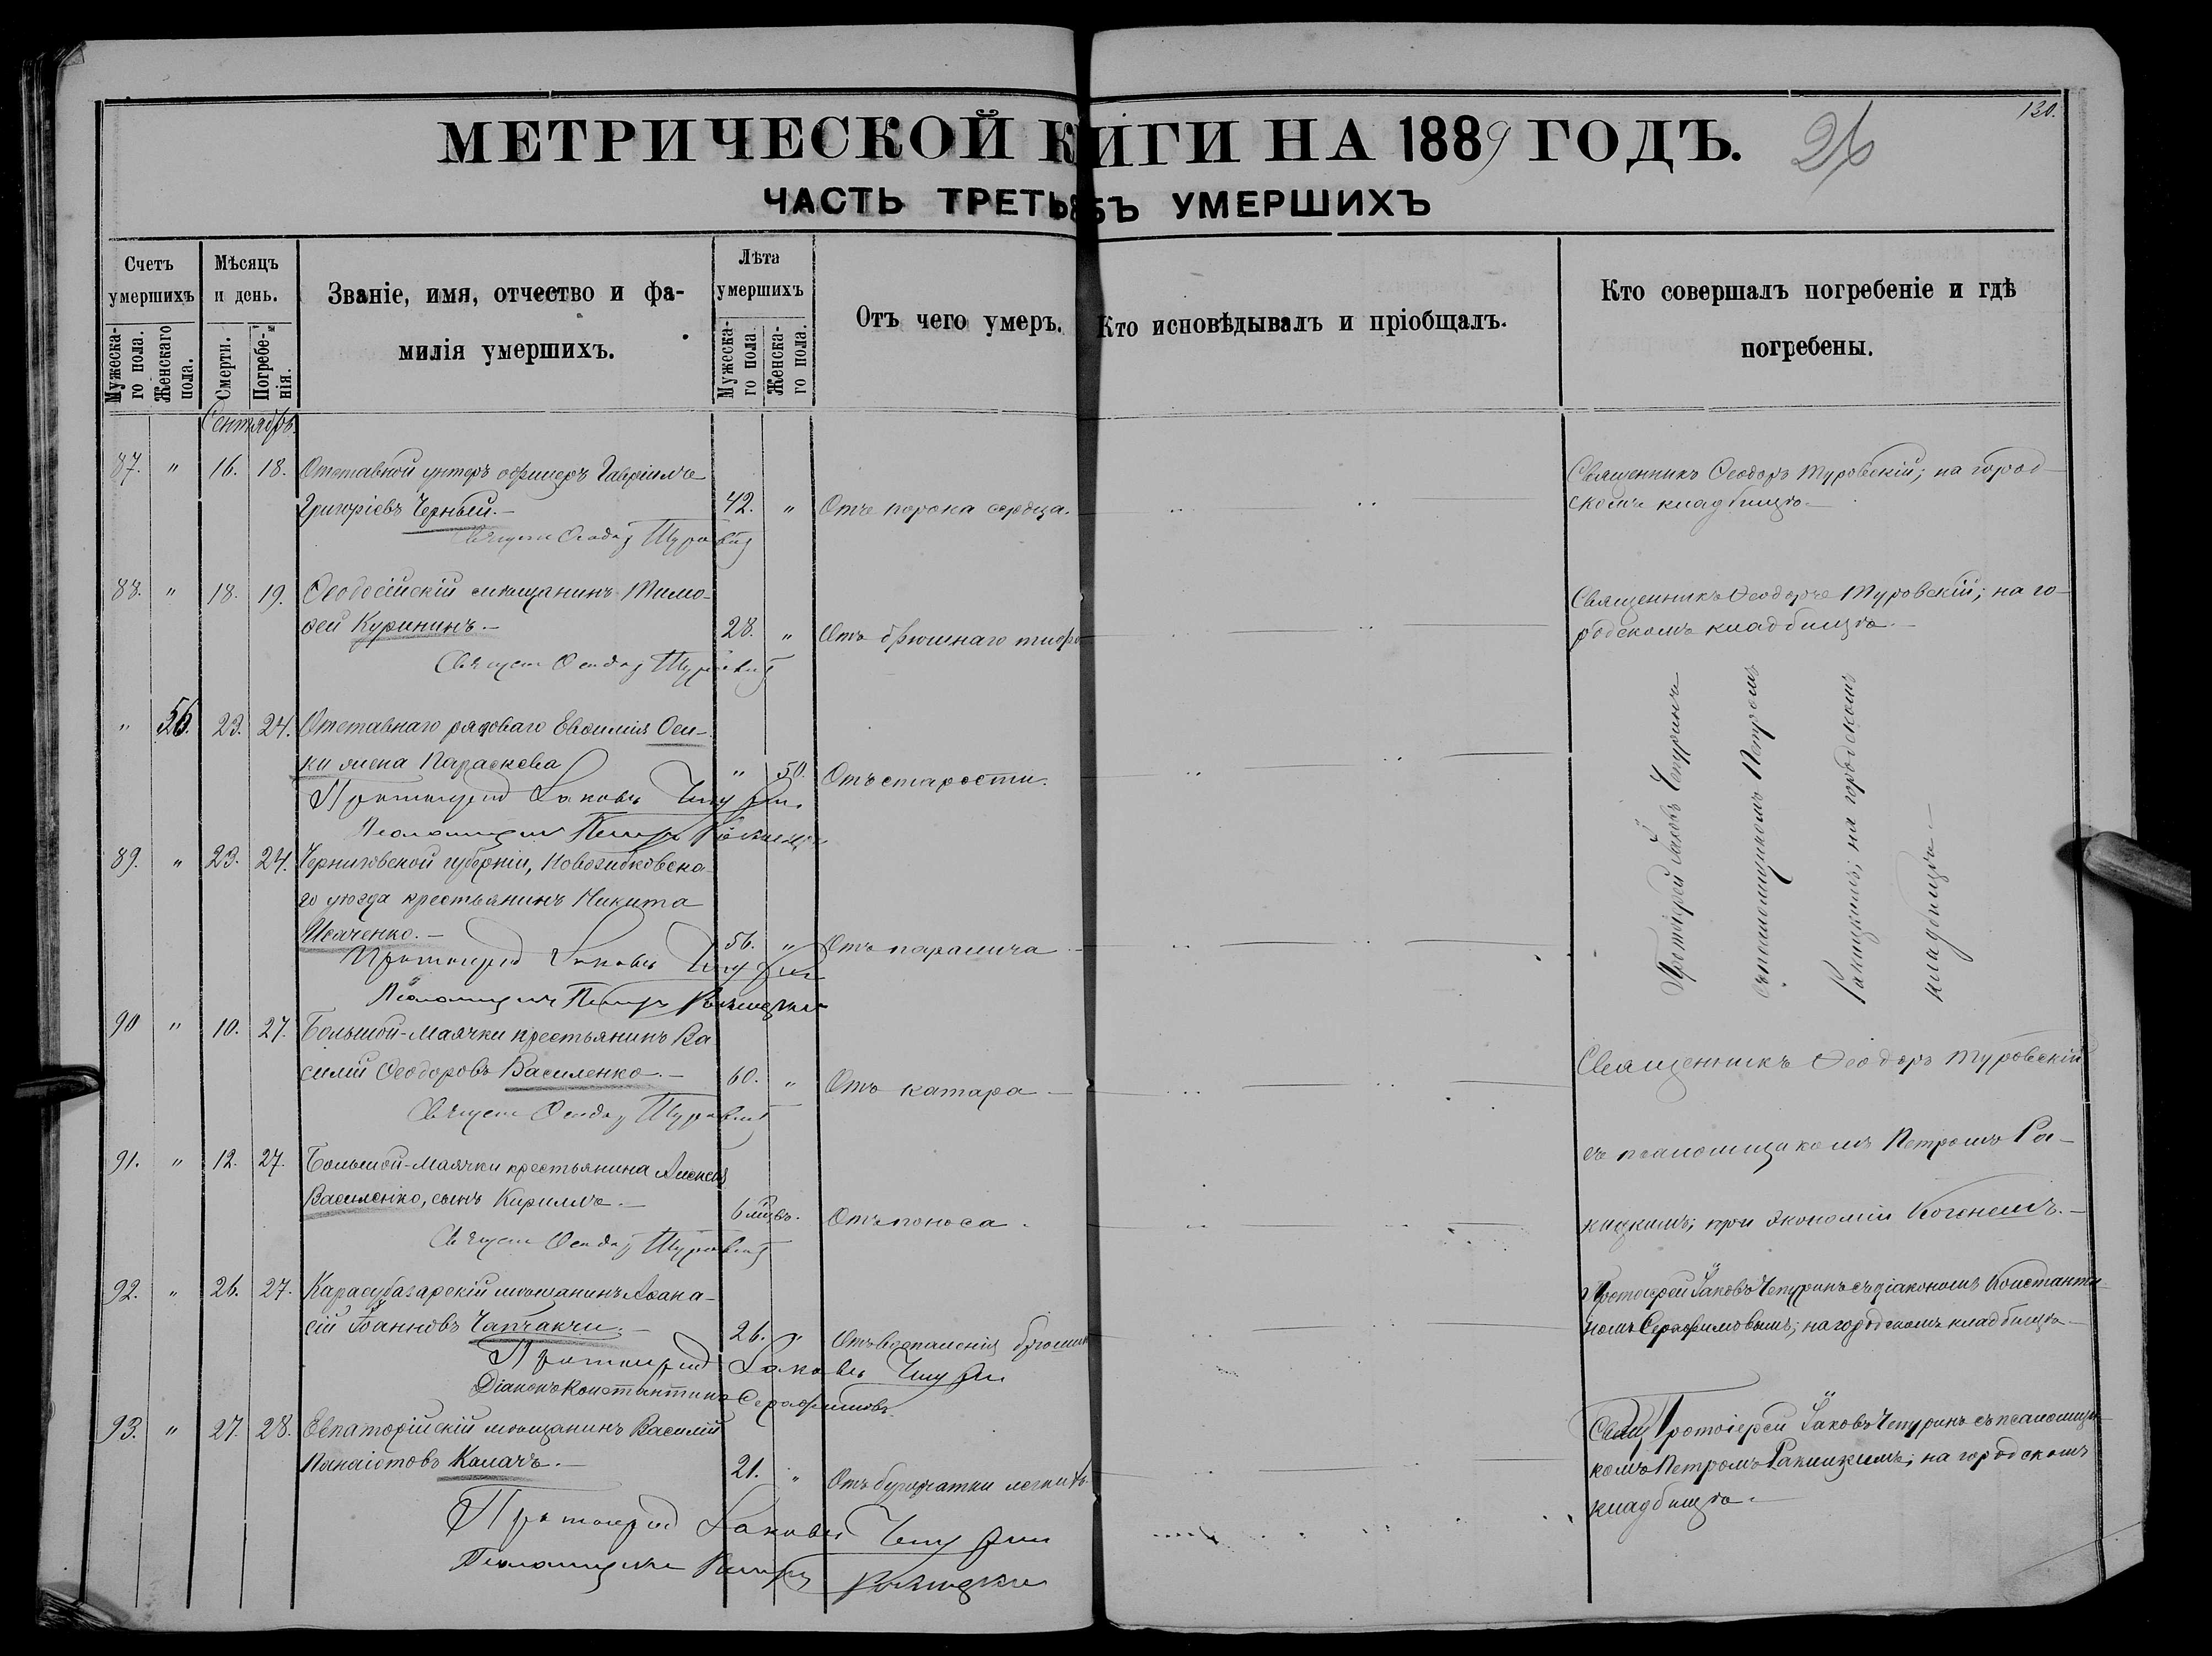 130.
МЕТРИЧЕСКОЙ КНИГИ НА 1889 ГОДЪ.
26
ЧАСТЬ ТРЕТЬ УМЕРШИХЪ
Счетъ умершихъ
Мѣсяцъ и день.
Званіе, имя, отчество и фа-
милія умершихъ.
Лѣта умершихъ
Отъ чего умеръ.
Кто исповѣдывалъ и пріобщалъ.
Кто совершалъ погребеніе и гдѣ
погребены.
Мужеска-го пола.
Женскаго пола.
Смерти.
Погребе-нія.
Мужеска-го пола
Женска-го пола.
Сентябрь.
87. " 16. 18. Отставной унтеръ офицеръ Гавріилъ
Григоріевъ Черный.- 42. " Отъ порока сердца.
Священникъ Ѳеодоръ Туровскій; на город-
скомъ кладбищѣ.-
Ѳеодоръ Туровскій
88. " 18. 19. Ѳеодосійскій мѣщанинъ Тимо-
ѳей Курининъ.- 28. " Отъ брюшнаго тифа
Священникъ Ѳеодоръ Туровскій; на го-
родскомъ кладбищѣ.-
Ѳеодоръ Туровскій
" 56. 23. 24. Отставнаго рядоваго Евѳимія Оси-
ки жена Параскева " 50. Отъ старости.
Протоіерей Іаковъ Чепуринъ
Псаломщикъ Петръ Ракицкій
89. " 23. 24. Черниговской губерніи, Новозибковска-
го уѣзда крестьянинъ Никита
Исаченко.- 56. " Отъ паралича
Протоіерей Іаковъ Чепуринъ
Псаломщикъ Петръ Ракицкій
Протоіерей Іаковъ Чепуринъ
съ псаломщикомъ Петромъ
Ракицкимъ; на городскомъ
кладбищѣ.-
90 " 10. 27. Большой-Маячки крестьянинъ Ва
силій Ѳеодоровъ Василенко.- 60. " Отъ катара
Ѳеодоръ Туровскій
91. " 12. 27. Большой-Маячки крестьянина Алексѣя
Василенко, сынъ Кириллъ.- 6 мѣцв. Отъ поноса.
Ѳеодоръ Туровскій
Священникъ Ѳеодоръ Туровскій
съ псаломщикомъ Петромъ Ра-
кицкимъ; при экономіи
92. " 26. 27. Карасубазарскій мѣщанинъ Аѳана-
сій Іоанновъ Чапчакчи.- 26. " Отъ воспаленія брюшины
Протоіерей Іаковъ Чепуринъ
Діаконъ Константинъ Серафимовъ.
Протоіерей Іаковъ Чепуринъ съ діакономъ Константи
номъ Серафимовымъ; на городскомъ кладбищѣ.-
93. " 27. 28. Евпаторійскій мѣщанинъ Василій
Панаіотовъ Калачъ.- 21. " Отъ бугорчатки легкихъ.
Протоіерей Іаковъ Чепуринъ
Псаломщикъ Петръ Ракицкій
Свящ Протоіерей Іаковъ Чепуринъ съ псаломщи-
комъ Петромъ Ракицкимъ; на городскомъ
кладбищѣ.-